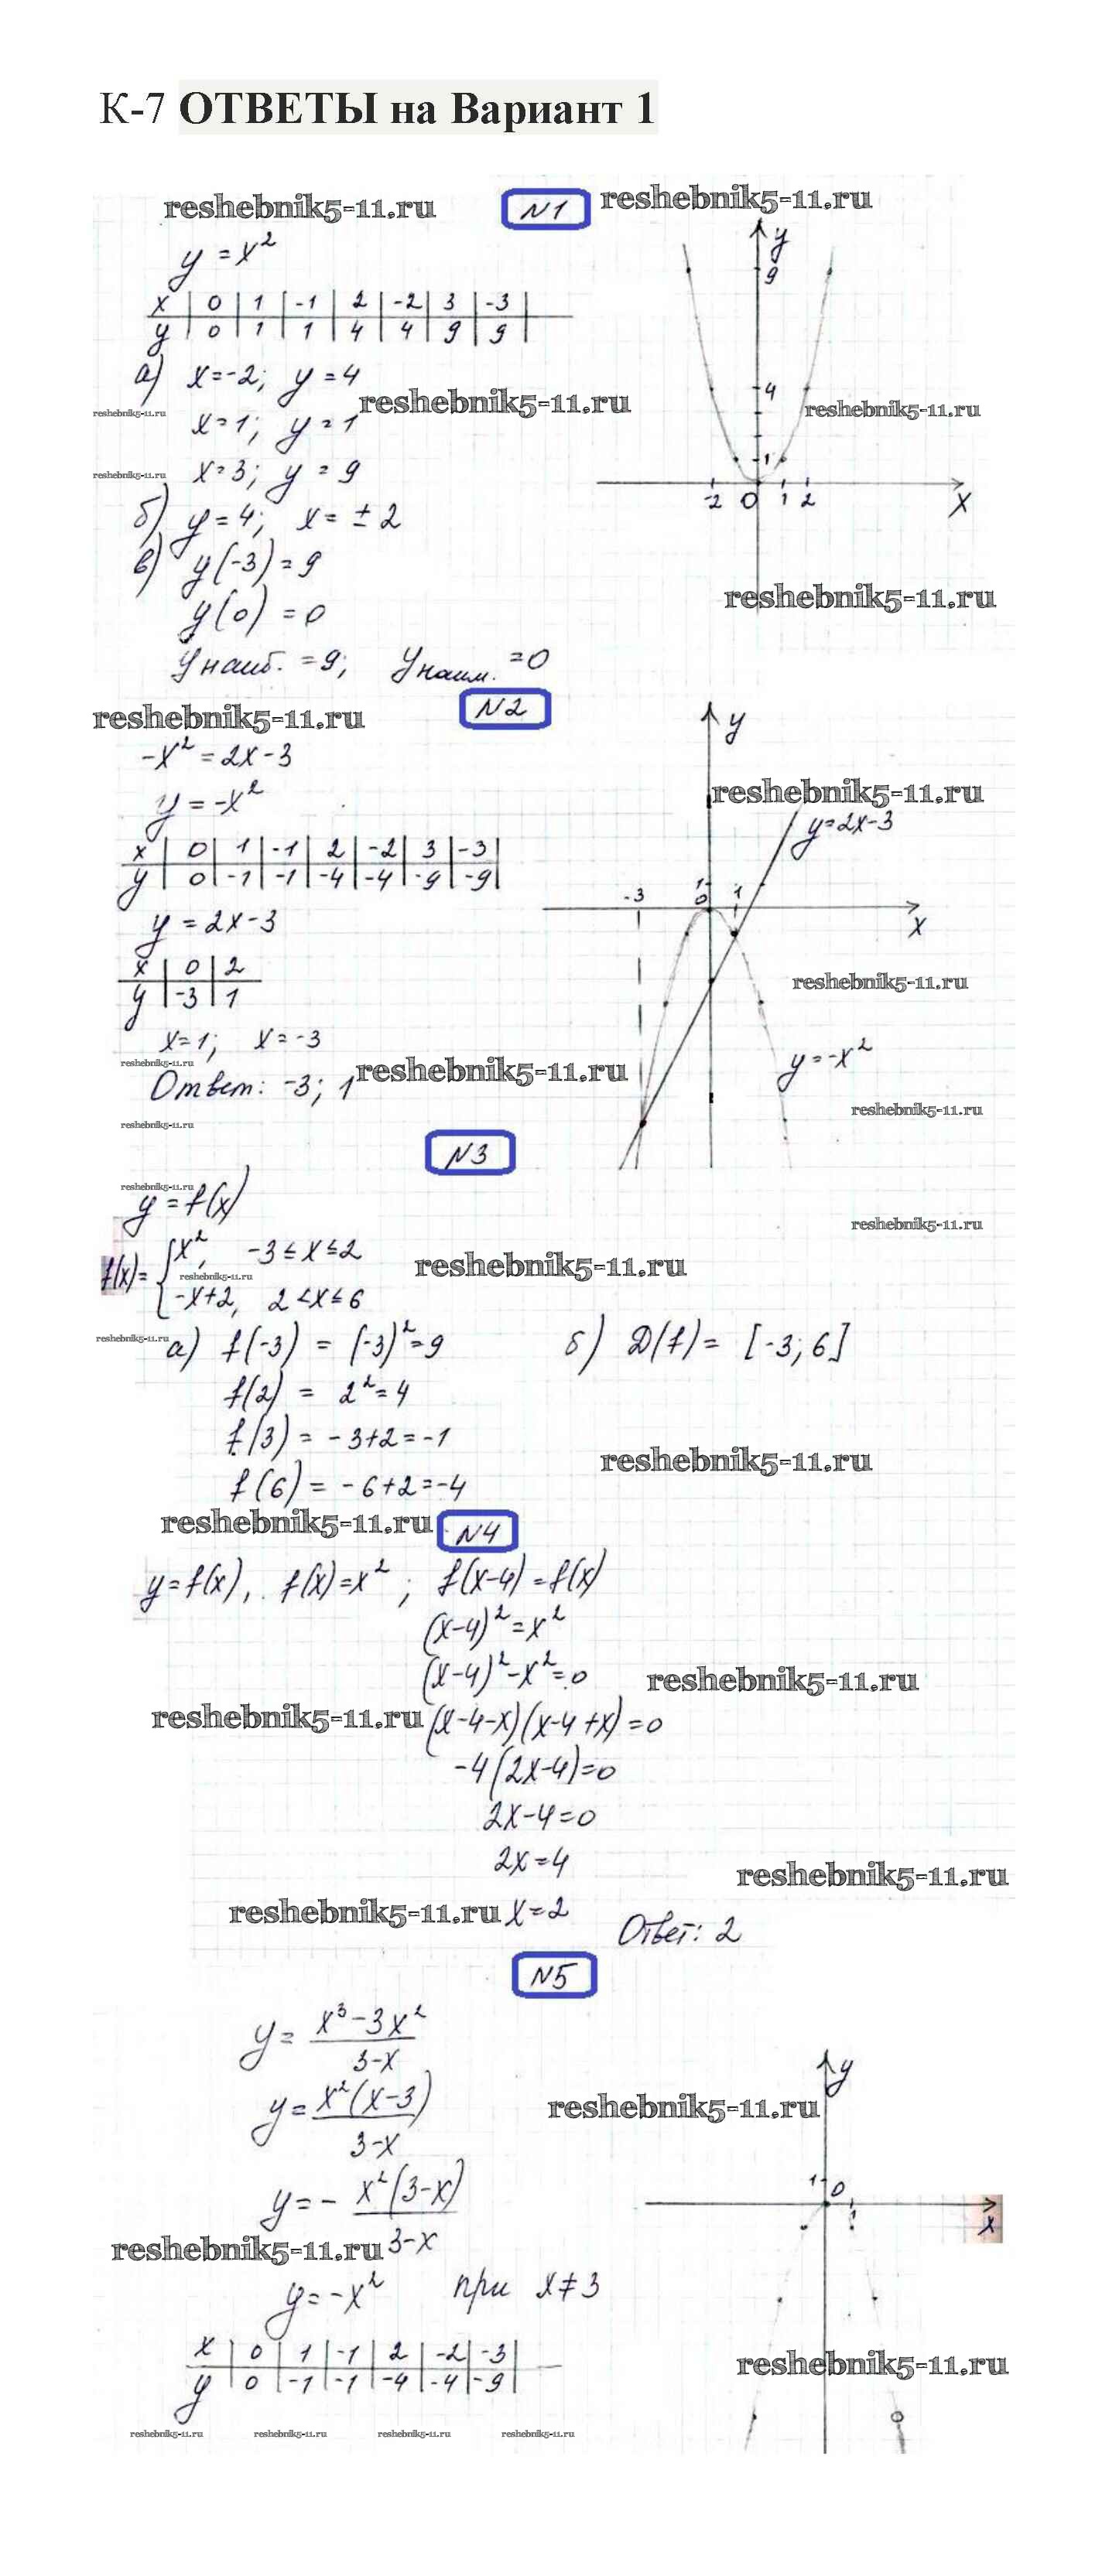 К-7 ОТВЕТЫ на Вариант 1
reshebnik5-11.ru
N1
reshebnik5-11.ru
y = x²
y
9
x | 0 | 1 | -1 | 2 | -2 | 3 | -3 |
y | 0 | 1 | 1 | 4 | 4 | 9 | 9 |
а) x=-2; y=4
4
reshebnik5-11.ru
reshebnik5-11.ru
reshebnik5-11.ru
x=1; y=1
1
reshebnik5-11.ru
x=3; y=9
-2 0 1 2 x
б) y=4; x=±2
в) y(-3)=9
reshebnik5-11.ru
y(0)=0
y наиб. =9; y наим. =0
reshebnik5-11.ru
N2
y
-x²=2x-3
y=-x²
reshebnik5-11.ru
y=2x-3
x | 0 | 1 | -1 | 2 | -2 | 3 | -3 |
y | 0 | -1 | -1 | -4 | -4 | -9 | -9 |
-3 1 0 1
x
y=2x-3
x | 0 | 2
y | -3 | 1
reshebnik5-11.ru
x=1; x=-3
reshebnik5-11.ru
y=-x²
Ответ: -3; 1
reshebnik5-11.ru
reshebnik5-11.ru
reshebnik5-11.ru
N3
reshebnik5-11.ru
y=f(x)
reshebnik5-11.ru
f(x)= { x², -3≤x≤2
reshebnik5-11.ru
reshebnik5-11.ru
-x+2, 2<x≤6
reshebnik5-11.ru
а) f(-3) = (-3)²=9
б) D(f)= [-3; 6]
f(2) = 2²=4
f(3) = -3+2=-1
reshebnik5-11.ru
f(6) = -6+2=-4
reshebnik5-11.ru
N4
y=f(x), f(x)=x²; f(x-4)=f(x)
(x-4)²=x²
(x-4)²-x²=0
reshebnik5-11.ru
reshebnik5-11.ru
(x-4-x)(x-4+x)=0
-4(2x-4)=0
2x-4=0
2x=4
reshebnik5-11.ru
reshebnik5-11.ru
x=2
Ответ: 2
N5
y= x³-3x²
3-x
y
y= x²(x-3)
3-x
reshebnik5-11.ru
y=- x²(3-x)
3-x
1 0
1 x
reshebnik5-11.ru
y=-x² при x≠3
x | 0 | 1 | -1 | 2 | -2 | -3 |
y | 0 | -1 | -1 | -4 | -4 | -9 |
reshebnik5-11.ru
reshebnik5-11.ru
reshebnik5-11.ru
reshebnik5-11.ru
reshebnik5-11.ru